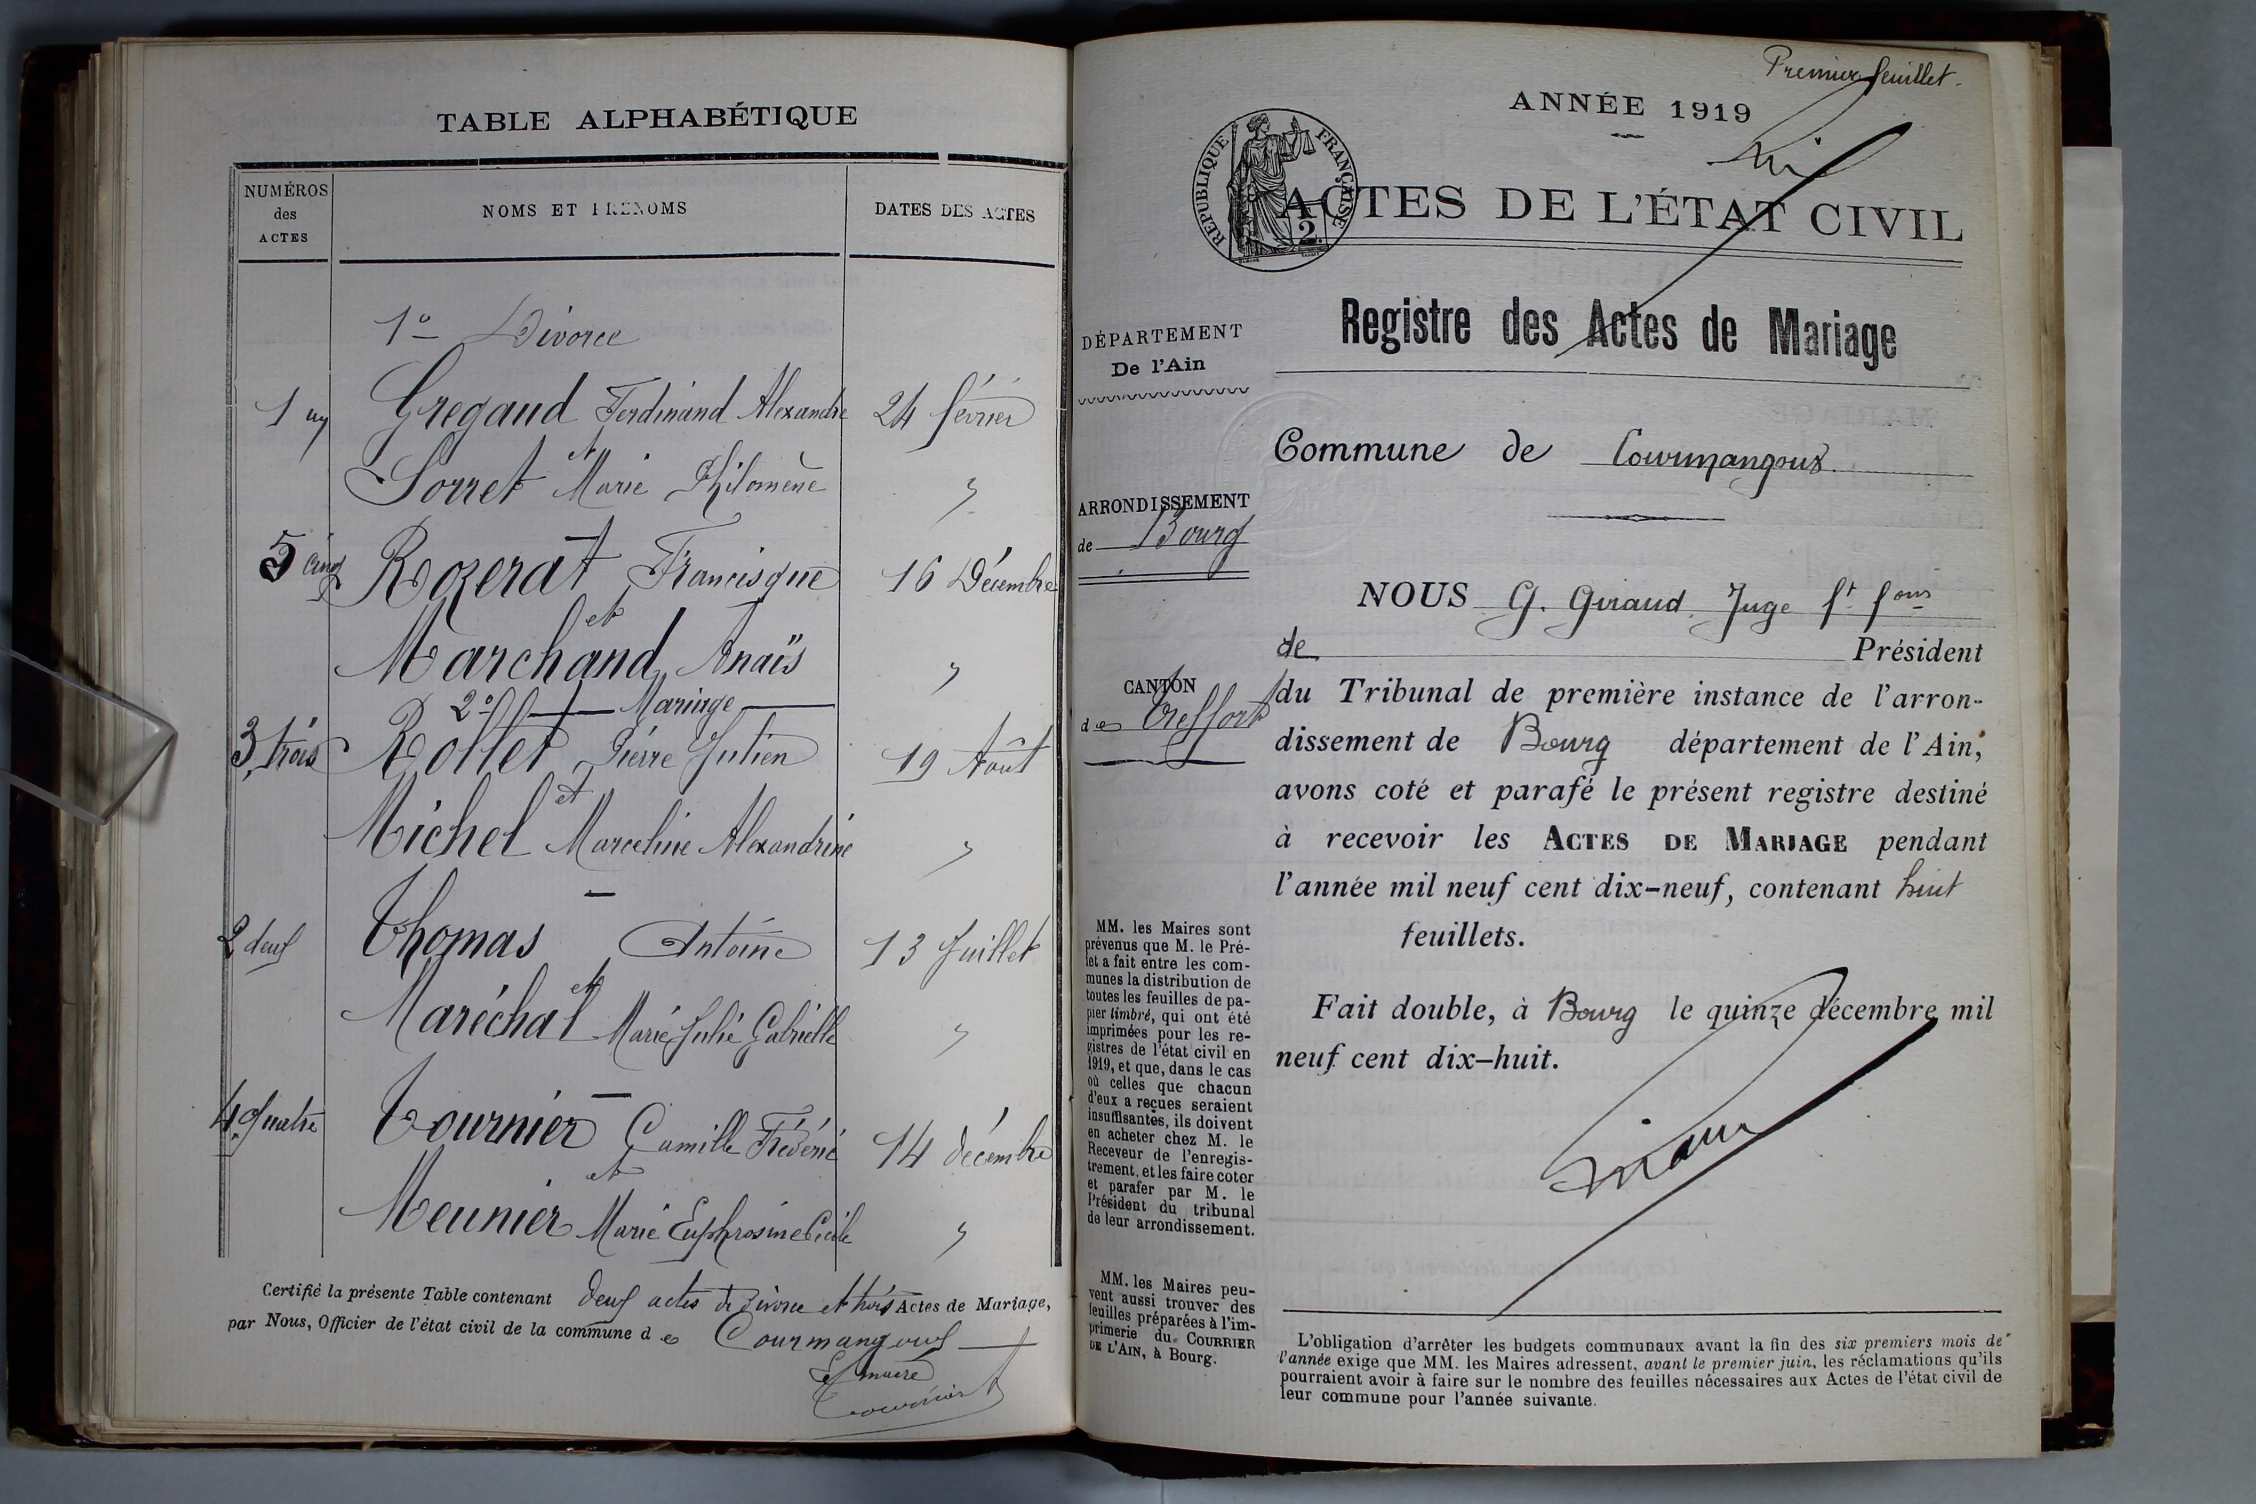 TABLE ALPHABÉTIQUE
NUMÉROS
des
ACTES
NOMS ET PRÉNOMS
DATES DES ACTES
1º Divorce
1 un Gregaud Ferdinand Alexandre 24 février
et
Sorret Marie Philomène "
5 cinq Rozerat Francisque 16 Décembre
et
Marchand Anaïs "
2º Mariage
3 trois Rollet Pierre Julien 19 Août
et
Michel Marceline Alexandrine "
2 deux Thomas Antoine 13 Juillet
et
Maréchal Marie Julie Gabrielle "
4 quatre Tournier Camille Frédéric 14 décembre
et
Meunier Marie Euphrosine Cécile "
Certifié la présente Table contenant deux actes de Divorce et trois Actes de Mariage,
par Nous, Officier de l'état civil de la commune de Courmangoux
Le maire
Premier feuillet.
ANNÉE 1919
RÉPUBLIQUE FRANÇAISE
2
ACTES DE L'ÉTAT CIVIL
Registre des Actes de Mariage
DÉPARTEMENT
De l'Ain
Commune de Courmangoux
ARRONDISSEMENT
de Bourg
CANTON
de Treffort
NOUS G. Giraud Juge ft fons
de Président
du Tribunal de première instance de l'arron-
dissement de Bourg département de l'Ain,
avons coté et parafé le présent registre destiné
à recevoir les ACTES DE MARIAGE pendant
l'année mil neuf cent dix-neuf, contenant huit
feuillets.
Fait double, à Bourg le quinze décembre mil
neuf cent dix-huit.
Giraud
MM. les Maires sont
prévenus que M. le Pré-
fet a fait entre les com-
munes la distribution de
toutes les feuilles de pa-
pier timbré, qui ont été
imprimées pour les re-
gistres de l'état civil en
1919, et que, dans le cas
où celles que chacun
d'eux a reçues seraient
insuffisantes, ils doivent
en acheter chez M. le
Receveur de l'enregis-
trement, et les faire coter
et parafer par M. le
Président du tribunal
de leur arrondissement.
MM. les Maires peu-
vent aussi trouver des
feuilles préparées à l'im-
primerie du COURRIER
DE L'AIN, à Bourg.
L'obligation d'arrêter les budgets communaux avant la fin des six premiers mois de
l'année exige que MM. les Maires adressent, avant le premier juin, les réclamations qu'ils
pourraient avoir à faire sur le nombre des feuilles nécessaires aux Actes de l'état civil de
leur commune pour l'année suivante.